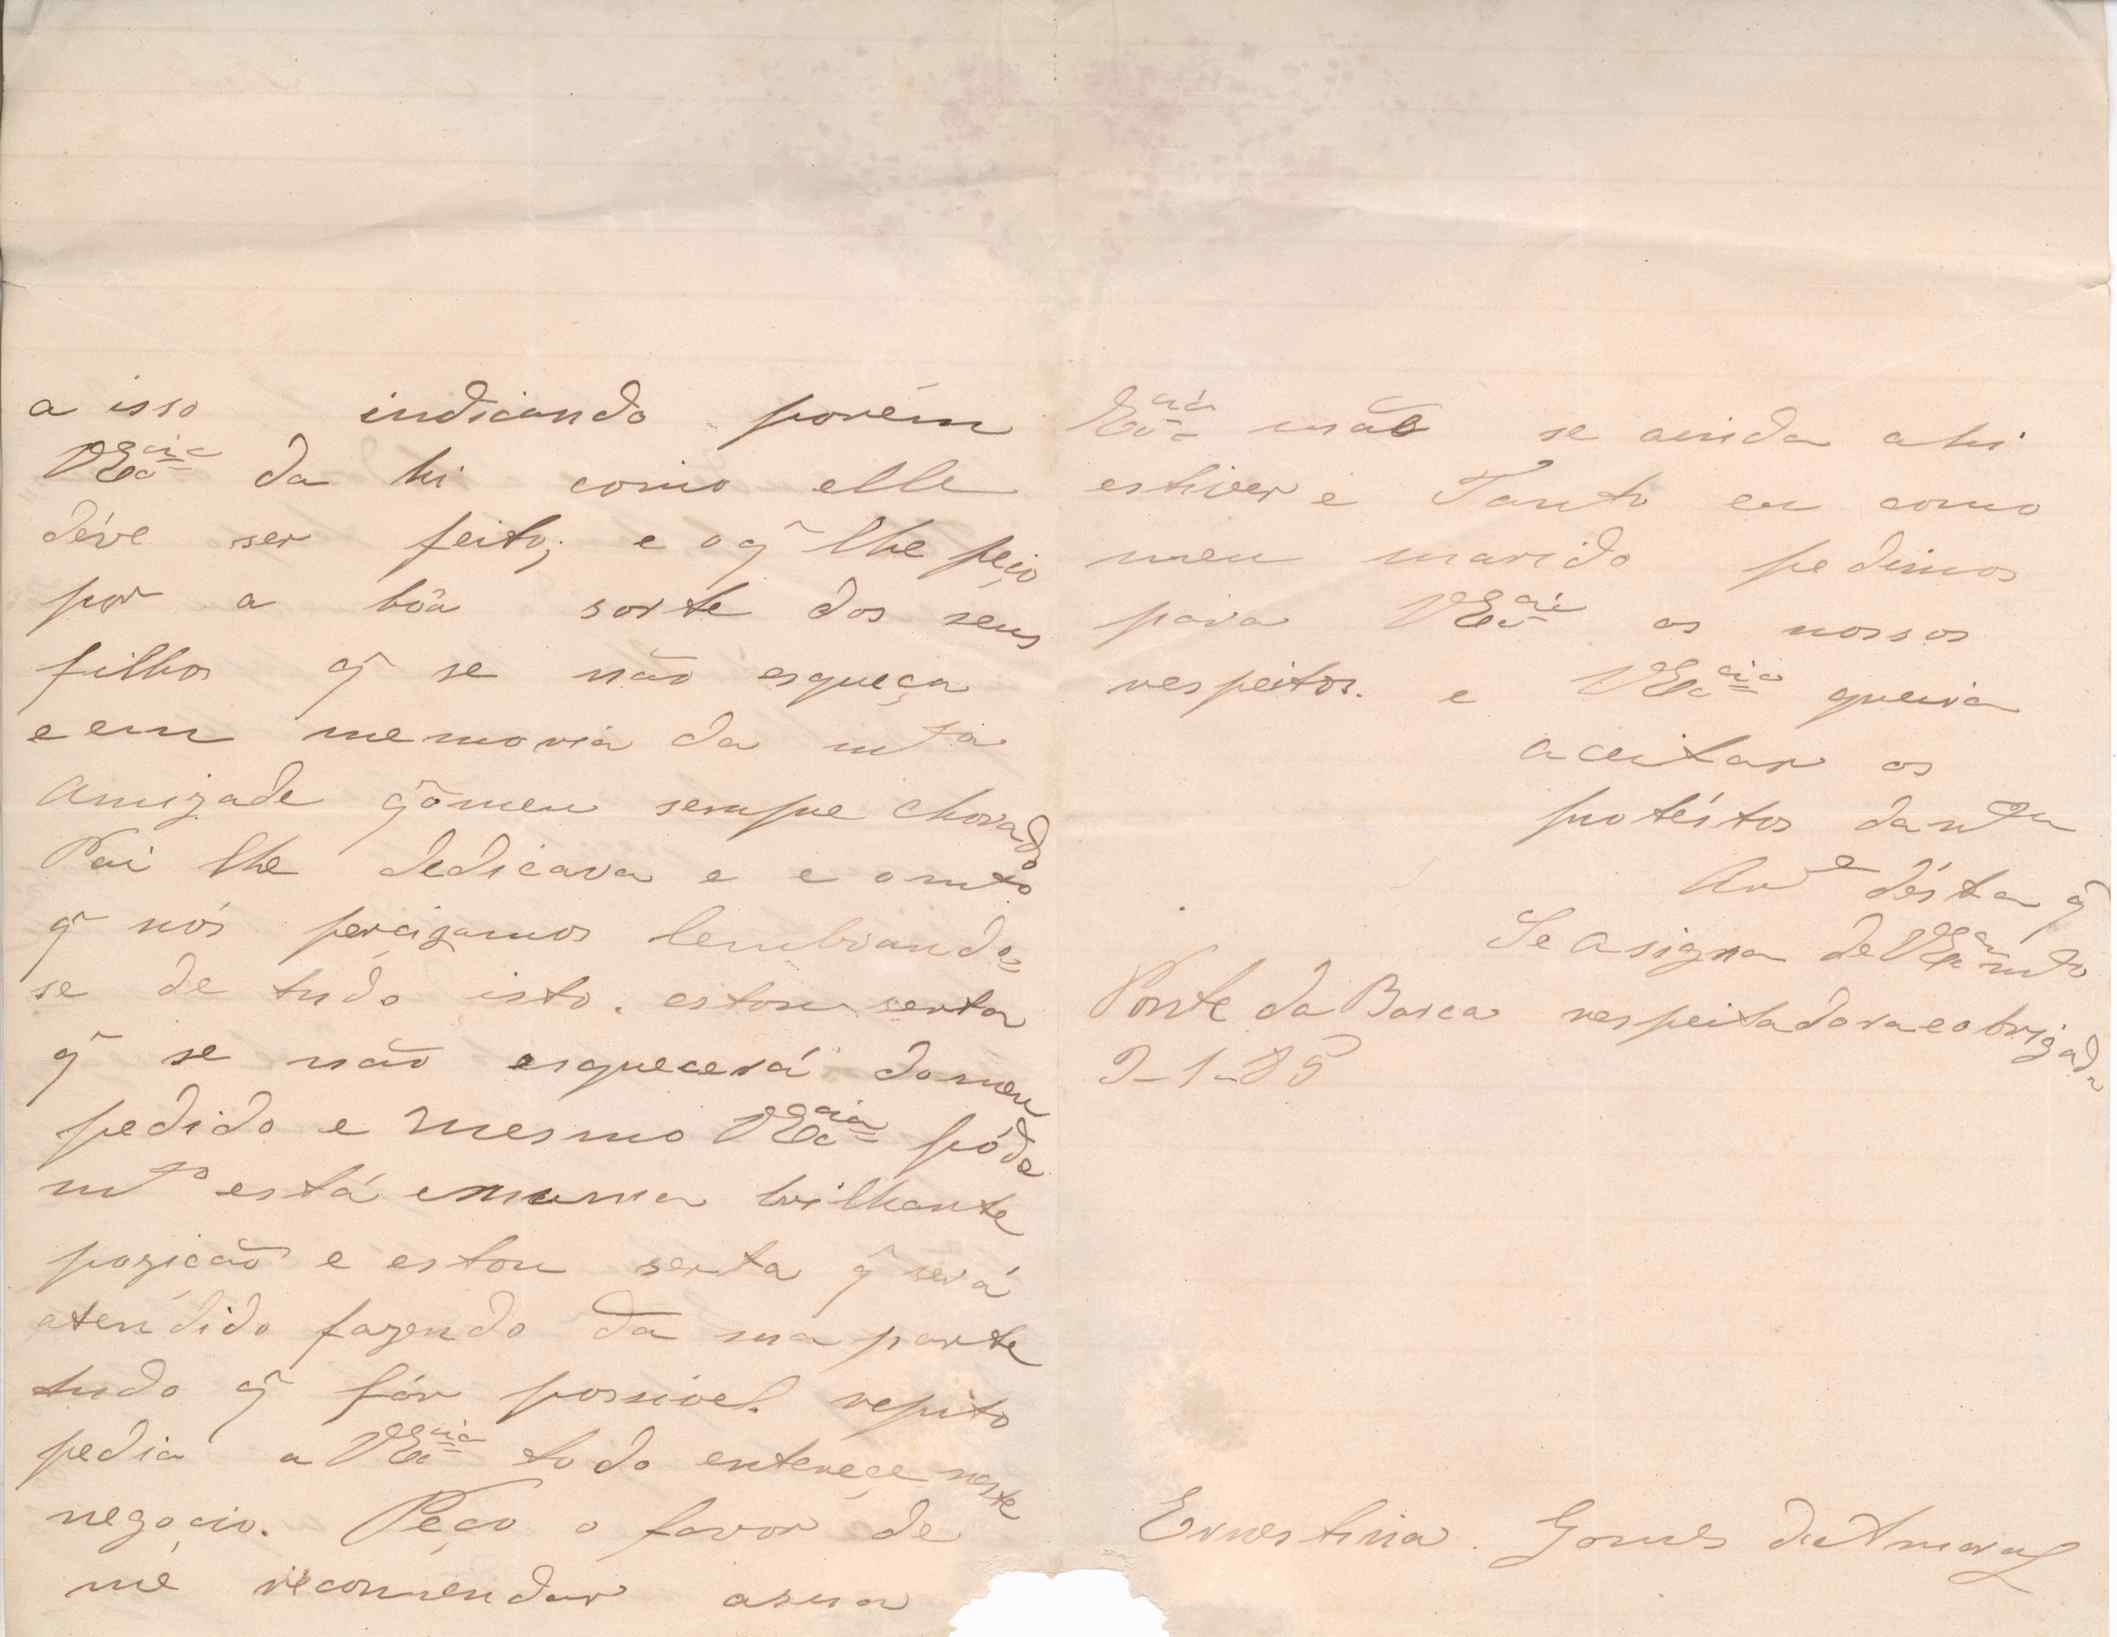 a isso indicando porém
VEx.cia da hi como elle
déve ser feito; e o q̃ lhe peço
por a bôa sorte dos seus
filhos q̃ se não esqueça
e em memoria da mta
Amizade q̃ o meu sempe chorado
Pai lhe dedicava e e o mto
q̃ nós percizamos lembrando=
se de tudo isto. estou serta
q̃ se não esquecerá do meu
pedido e mesmo VEx.cia póde
mto está em uma brilhante
pozição e estou serta q̃ será
atendido fazendo da sua parte
tudo q̃ fôr possivel. repito
pedia a VEx.cia todo entereçe neste
negocio. Peço o favor de
me recomendar a sua
Ex.cia mãe se ainda ahi
estiver e Tanto eu como
meu marido pedimos
para VEx.cia os nossos
respeitos. e VEx.cia queira
aceitar os
protéstos da mta
désta q̃
Se asigna de VEx.cia mto
Ponte da Barca respeitadora e obrigada
9-1-85
Ernestina Gomes do Amaral